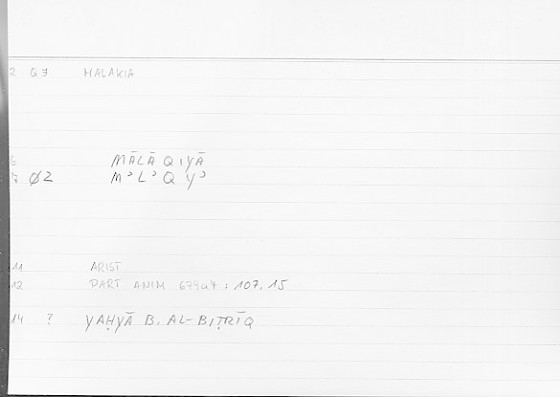 2 Q7 MALAKIA
6 MĀLĀQIYĀ
7 Ø2 MʾLʾQYʾ
11 ARIST
12 PART ANIM 679a7 : 107.15
14 ? YAḤYĀ B. AL-BIṬRĪQ